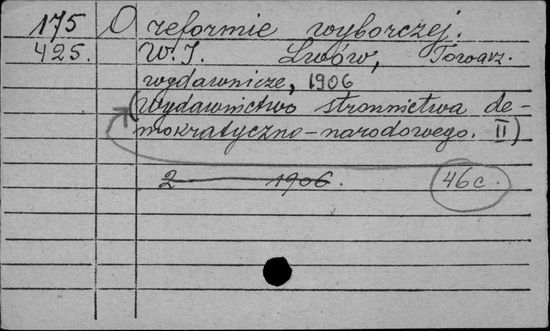 175 O reformie wyborczej.
425. W.J. Lwów, Towarz.
wydawnicze, 1906
(Wydawnictwo stronnictwa de-
mokratyczno-narodowego. II)
2 1906. 46c.